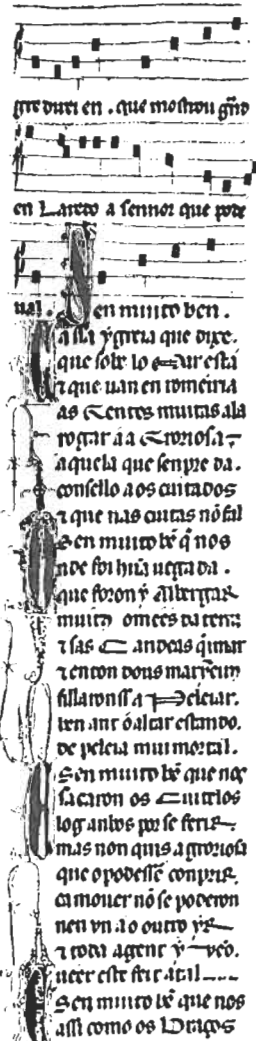 gre dur en . que mostrou grãd
en Laredo a sennor que pode
ual . Sen muito ben .
a sla ygreia que dixe .
que sobe lo Mar està
⁊ que uan en romeiria
as Gentes muitas alà
rogar áa Groriosa ⁊
aquela que senpre da .
consello aos cuitados
⁊ que nas cuitas nõ fal
Sen muito bẽ q̃ nos
nde foi hũa uegada .
que foron y Albergar
muitos omẽes da terra
⁊ sas Candeas q̃imar
⁊ enton dous
fillaronss a Peleiar .
ben ant ó altar estando .
de peleia mui mortal .
Sen muito bẽ que nos
sacaron os Cuitelos
log anbos por se ferir
mas non quis a groriosa
que o podesse conprir .
ca mouer nõ se poderon
nen un a o outro yr
⁊ toda a gent y vẽo .
ueer este feit atal
Sen muito bẽ que nos
assi como os Braços